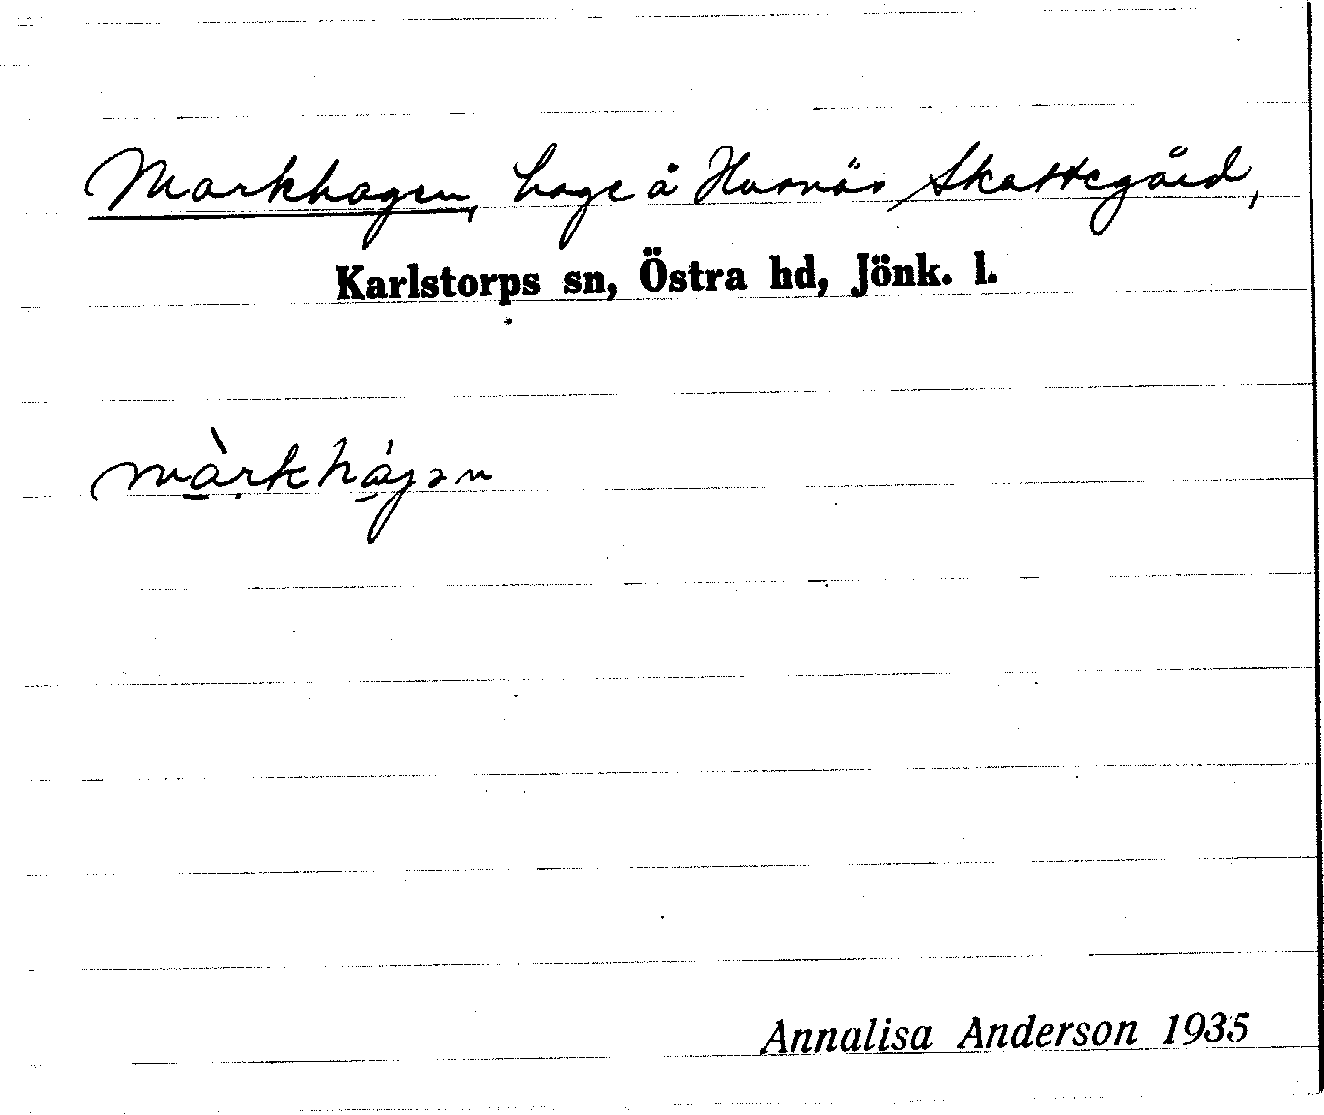 Markhagen, hage å Husnäs Skattegård,
Karlstorps sn, Östra hd, Jönk. l.
màrkhágən
Annalisa Anderson 1935